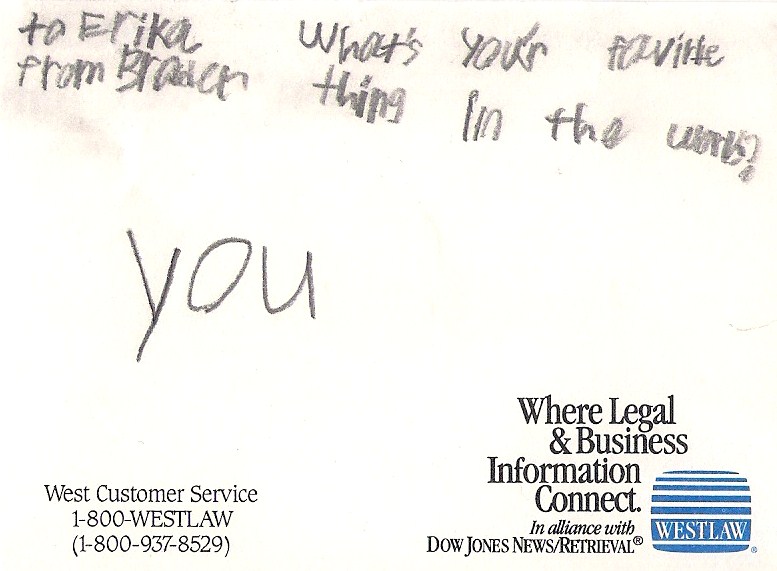 to Erika
from Braden
What's your favirite
thing in the world?
you
West Customer Service
1-800-WESTLAW
(1-800-937-8529)
Where Legal
& Business
Information
Connect.
In alliance with
DOW JONES NEWS/RETRIEVAL®
WESTLAW®